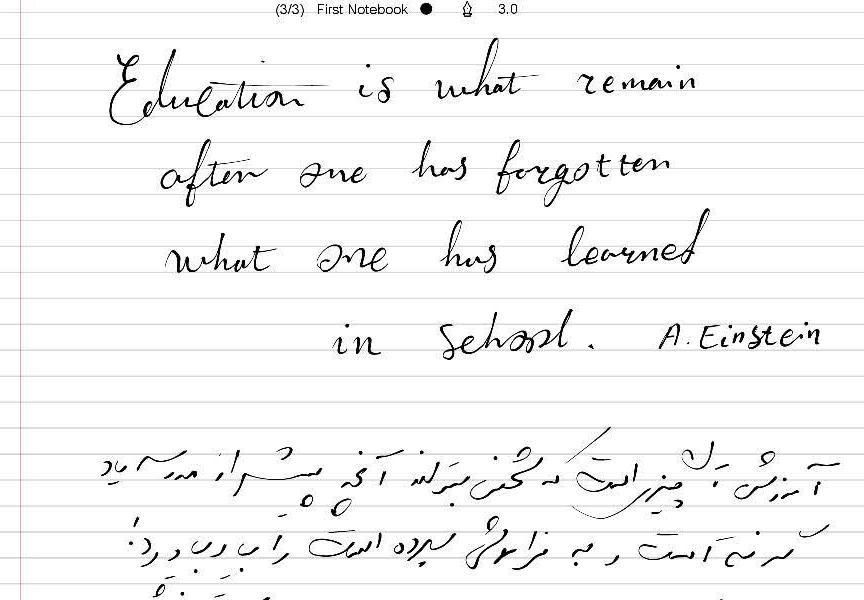 (3/3) First Notebook 3.0
Education is what remain
after one has forgotten
what one has learned
in school. A. Einstein
آموزش آن چیزی است که شخص میتواند آنچه پیشتر از مدرسه یاد
گرفته است و به فراموشی سپرده است را بیاورد